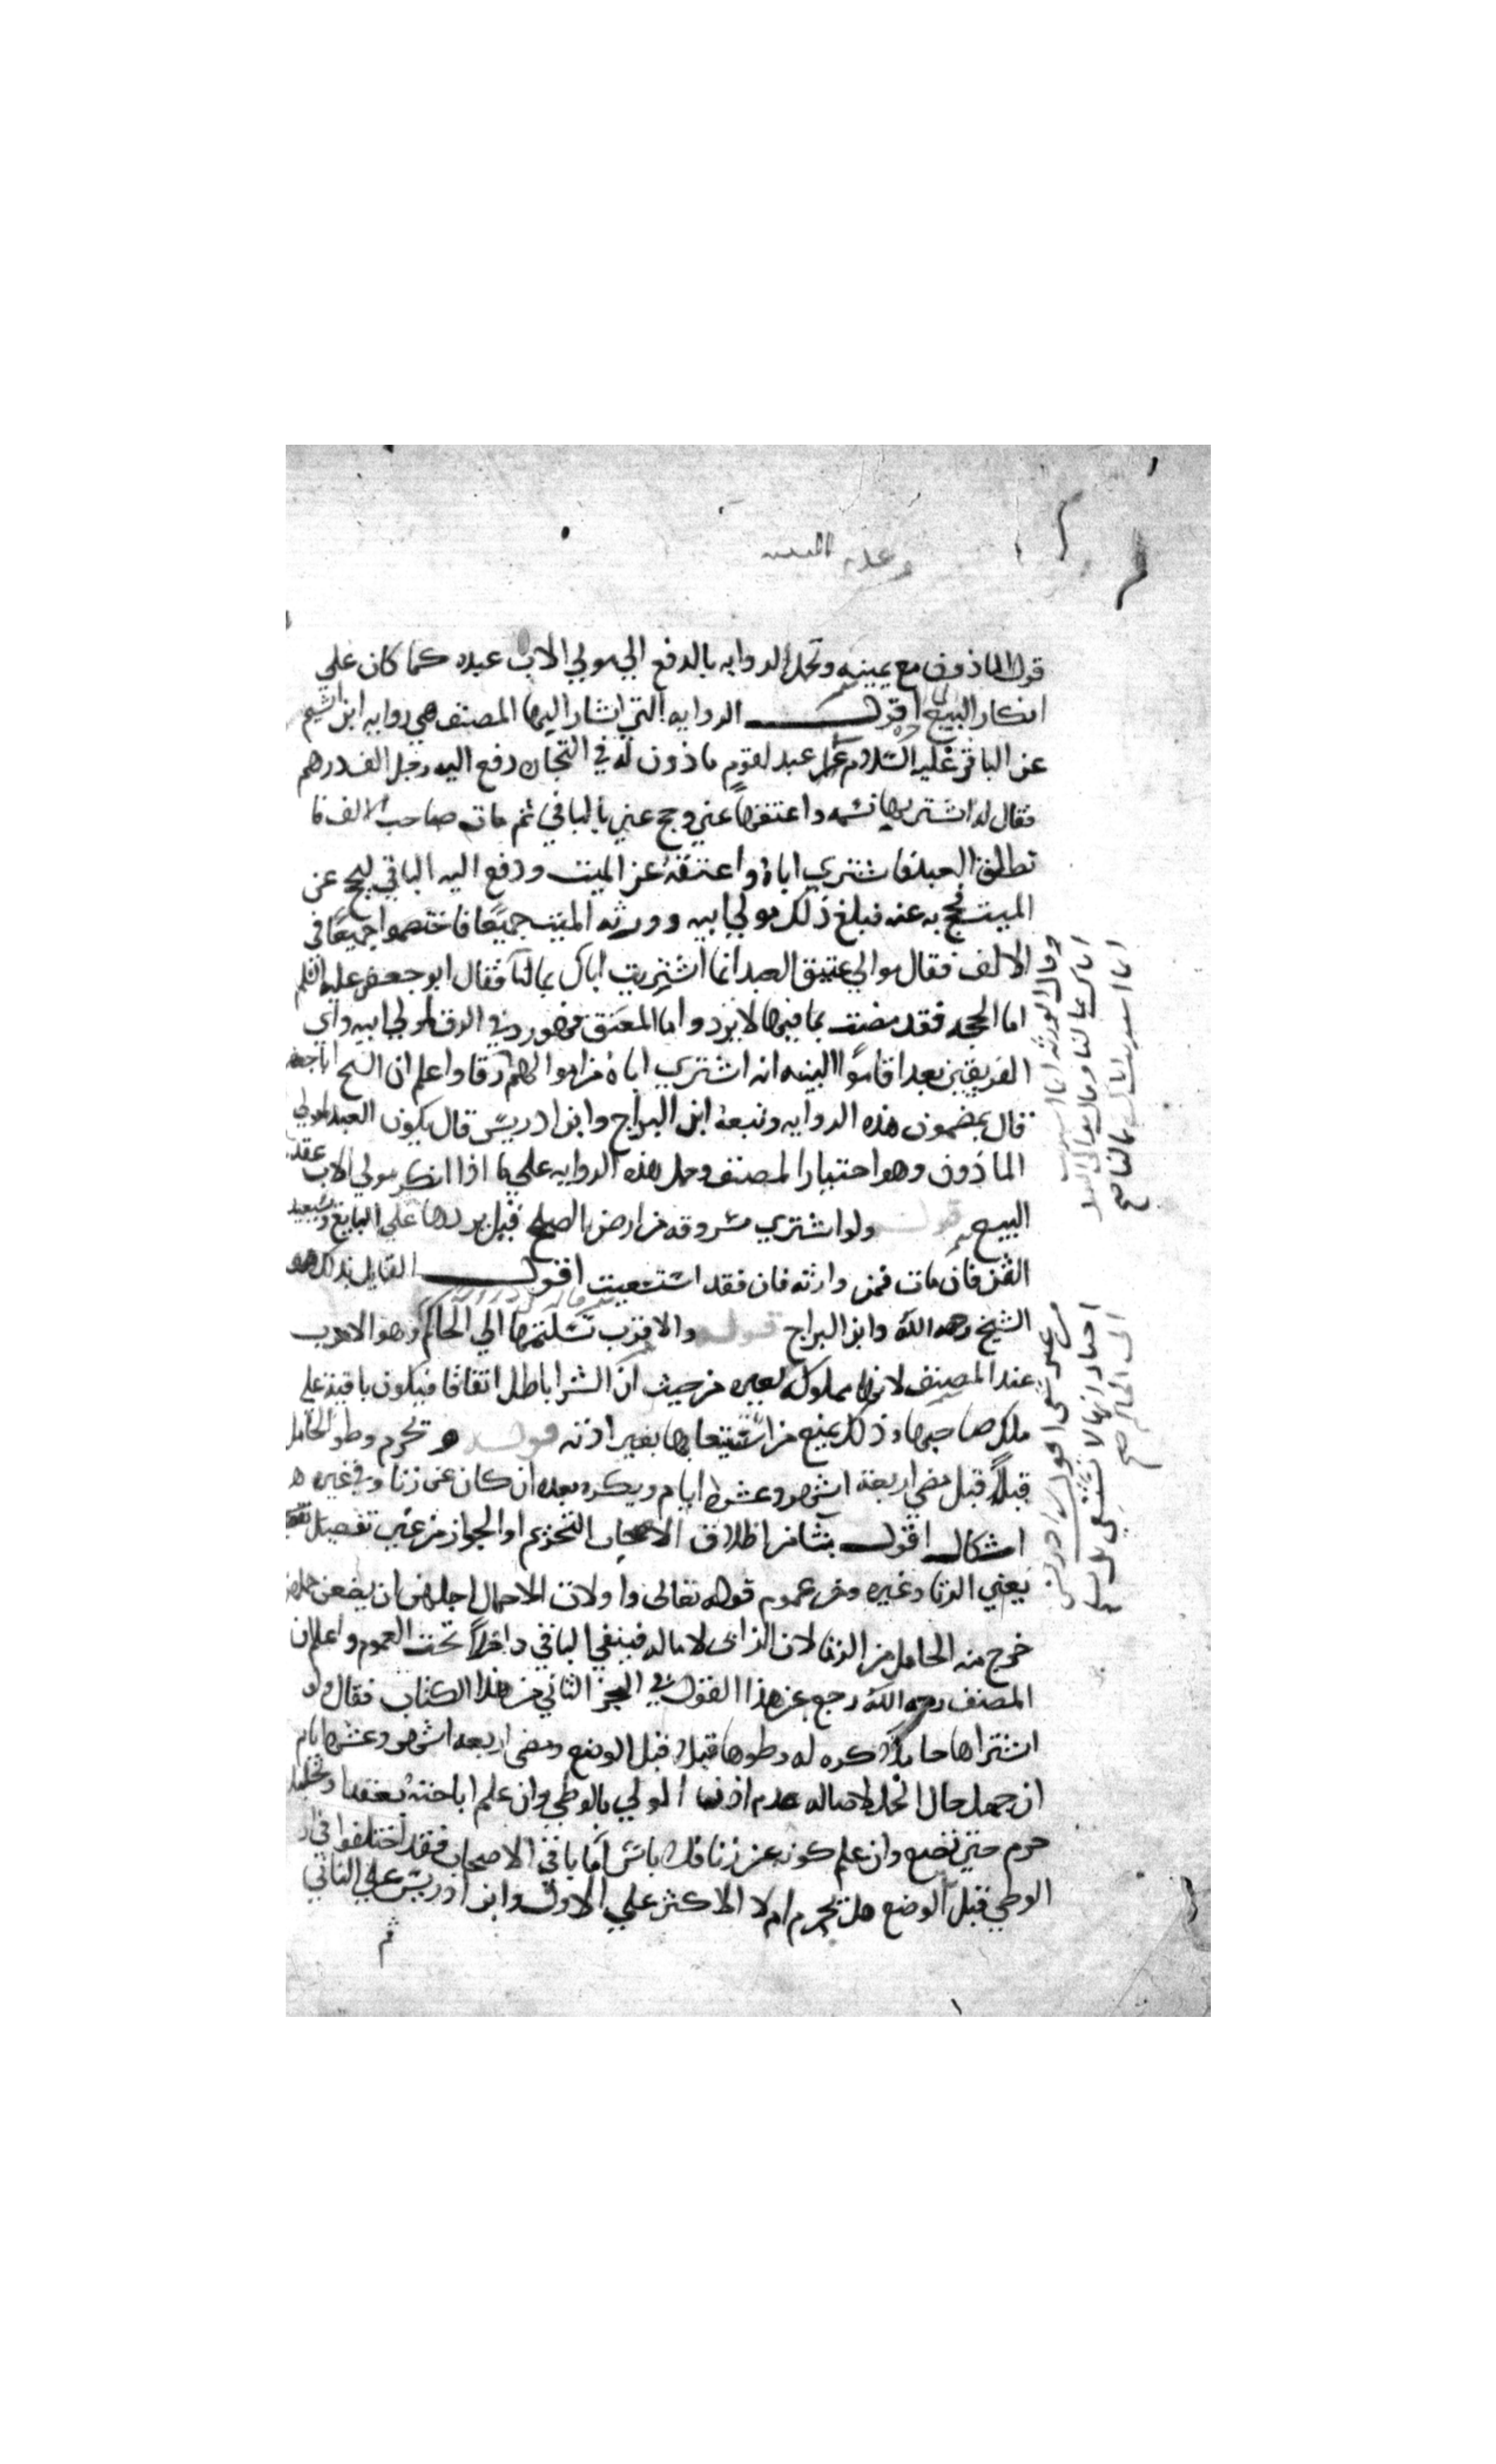 قول الماذون مع يمينه وتحمل الروايه بالدفع الي مولي الاب عبده كما كان علي
انكار البيع اقول الروايه التي اشار اليها المصنف هي روايه ابن اشيم
عن الباقر عليه السلام عن عبد لقوم ماذون له في التجاره دفع اليه رجل الف درهم
فقال له اشتر بها نسمه واعتقها عني وحج عني بالباقي ثم مات صاحب الالف فا
نطلق العبد فاشتري اباه واعتقه عن الميت ودفع اليه الباقي ليحج عن
الميت فحج به عنه فبلغ ذلك مولي ابيه وورثه الميت جميعا فاختصموا جميعا في
الالف فقال موالي عتيق العبد انما اشتريت اباك بمالنا فقال ابو جعفر عليه السلم
اما الحجه فقد مضت بما فيها لا يرد واما المعتق فهو رد في الرق لمولي ابيه واي
الفريقين بعد اقاموا البينه انه اشتري اباه من اموالهم كان له رقا واعلم ان الشيخ ابا جعفر
قال بمضمون هذه الروايه وتبعه ابن البراج وابن ادريس قال يكون العبد لمولي
الماذون وهو اختيار المصنف وحمل هذه الروايه علي ما اذا انكر مولي الاب عقد
البيع قوله ولو اشتري مسروقه من ارض الصلح قيل يردها علي البايع ويستعيد
الثمن فان مات فمن وارثه فان فقد استسعيت اقول القايل بذلك هو
الشيخ رحمه الله وابن البراج قوله والاقرب تسليمها الي الحاكم وهو الاقرب
عند المصنف لانها مملوكه لغيره من حيث ان الشرا باطل اتفاقا فيكون باقيه علي
ملك صاحبها وذلك يمنع من استسعايها بغير اذنه قوله ويحرم وطو الحامل
قبلا قبل مضي اربعة اشهر وعشرة ايام ويكره بعده ان كان عن زنا وفي غيره
اشكال اقول ينشا من اطلاق الاصحاب التحريم او الجواز من غير تفصيل
يعني الزنا وغيره ومن عموم قوله تعالى واولات الاحمال اجلهن ان يضعن حملهن
خرج منه الحامل من الزنا لان الزاني لا ما له فيبقي الباقي داخلا تحت العموم واعلم ان
المصنف رحمه الله رجع عن هذا القول في الجز الثاني من هذا الكتاب فقال ولو
اشتراها حاملا كره له وطوها قبلا قبل الوضع ومضي اربعه اشهر وعشره ايام
ان جهل حال الحمل لاصاله عدم اذن المولي بالوطي وان علم اباحته بعقد او تحليل
حرم حتي تضع وان علم كونه عن زنا فلا باس اما باقي الاصحاب فقد اختلفوا في
الوطي قبل الوضع هل يحرم ام لا الاكثر علي الاول وابن ادريس علي الثاني
وقال الورثه انما اشتريت
اباك بمالنا وقال موالي العبد
انما اشتريت اباك بمالنا صح